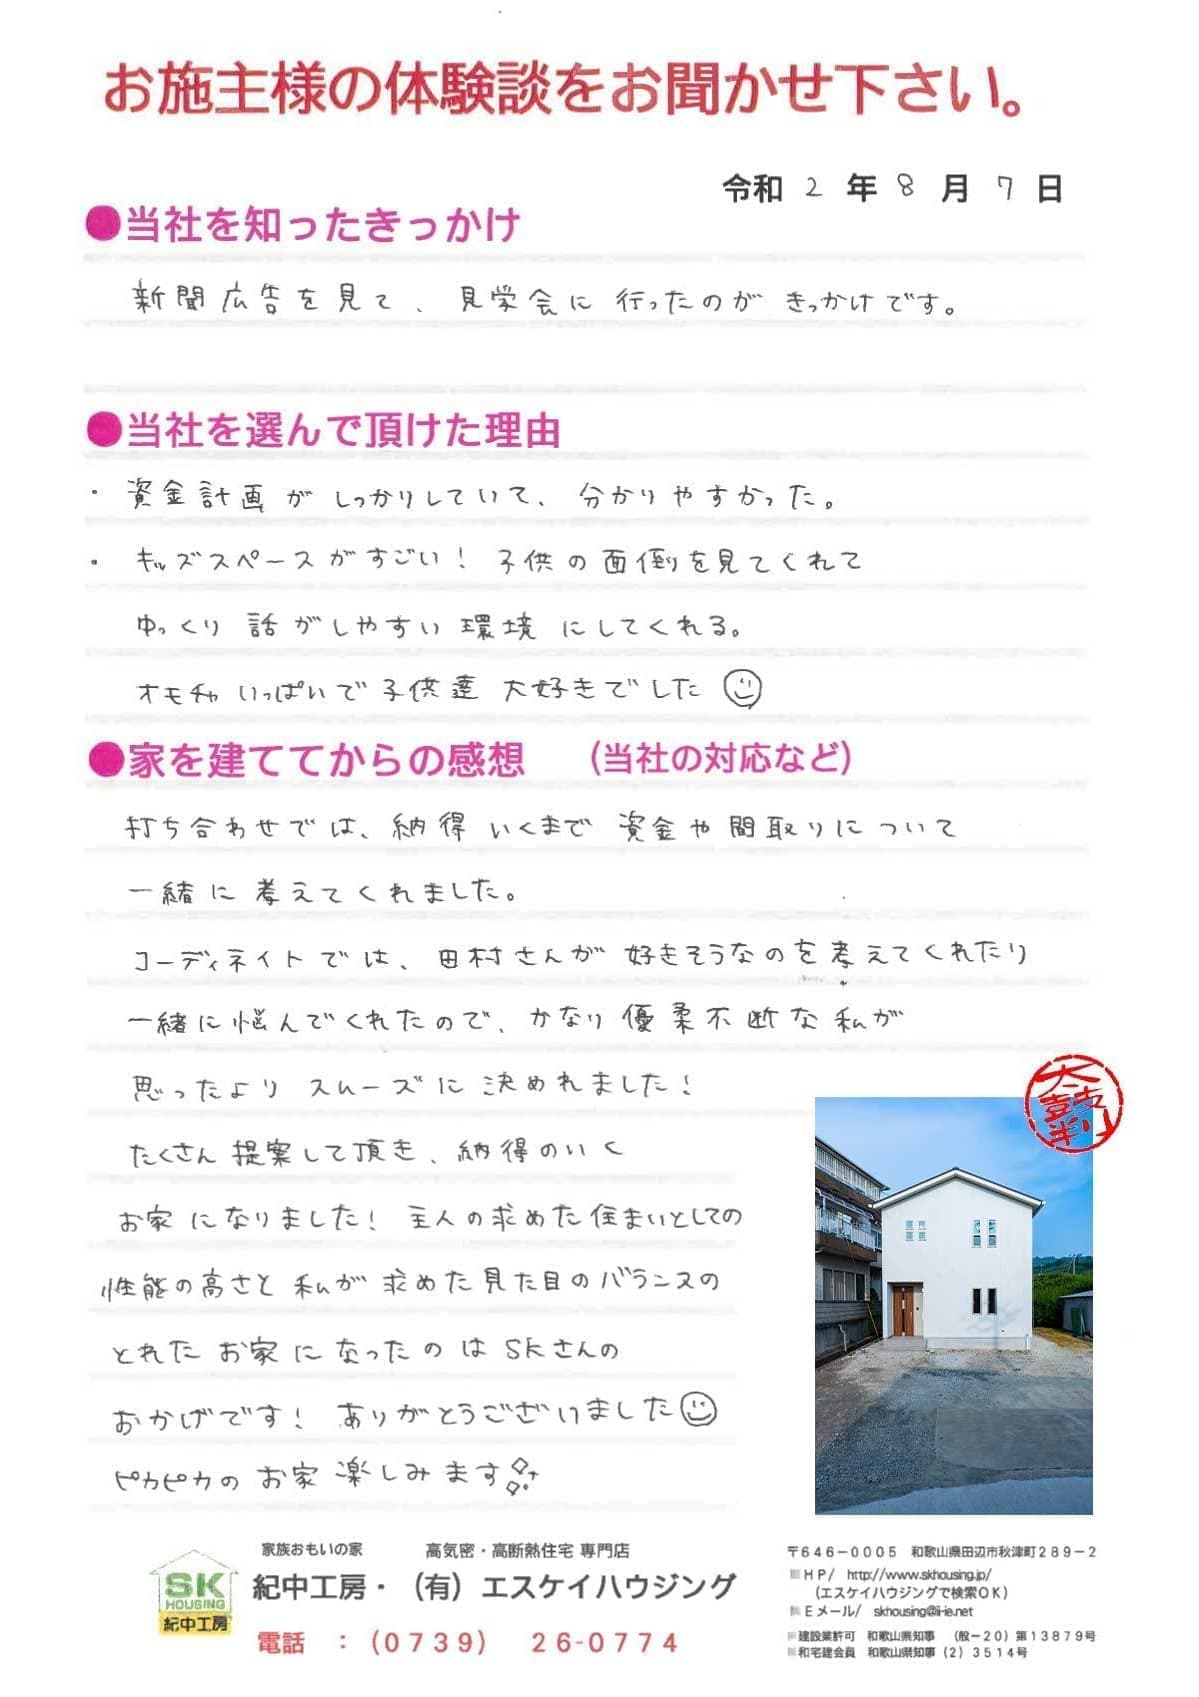 お施主様の体験談をお聞かせ下さい。
令和 2 年 8 月 7 日
●当社を知ったきっかけ
新聞広告を見て、見学会に行ったのがきっかけです。
●当社を選んで頂けた理由
・資金計画がしっかりしていて、分かりやすかった。
・キッズスペースがすごい！子供の面倒を見てくれて
ゆっくり話がしやすい環境にしてくれる。
オモチャいっぱいで子供達大好きでした
●家を建ててからの感想 （当社の対応など）
打ち合わせでは、納得いくまで資金や間取りについて
一緒に考えてくれました。
コーディネイトでは、田村さんが好きそうなのを考えてくれたり
一緒に悩んでくれたので、かなり優柔不断な私が
思ったよりスムーズに決めれました！
たくさん提案して頂き、納得のいく
お家になりました！主人の求めた住まいとしての
性能の高さと私が求めた見た目のバランスの
とれたお家になったのはSKさんの
おかげです！ありがとうございました
ピカピカのお家楽しみます
太鼓判
家族おもいの家 高気密・高断熱住宅 専門店
SK HOUSING 紀中工房
紀中工房・（有）エスケイハウジング
電話 ：（0739） 26-0774
〒646－0005 和歌山県田辺市秋津町289－2
HP/ http://www.skhousing.jp/
（エスケイハウジングで検索OK）
Eメール/ skhousing@i-ie.net
建設業許可 和歌山県知事 （般－20）第13879号
和宅建会員 和歌山県知事（2）3514号